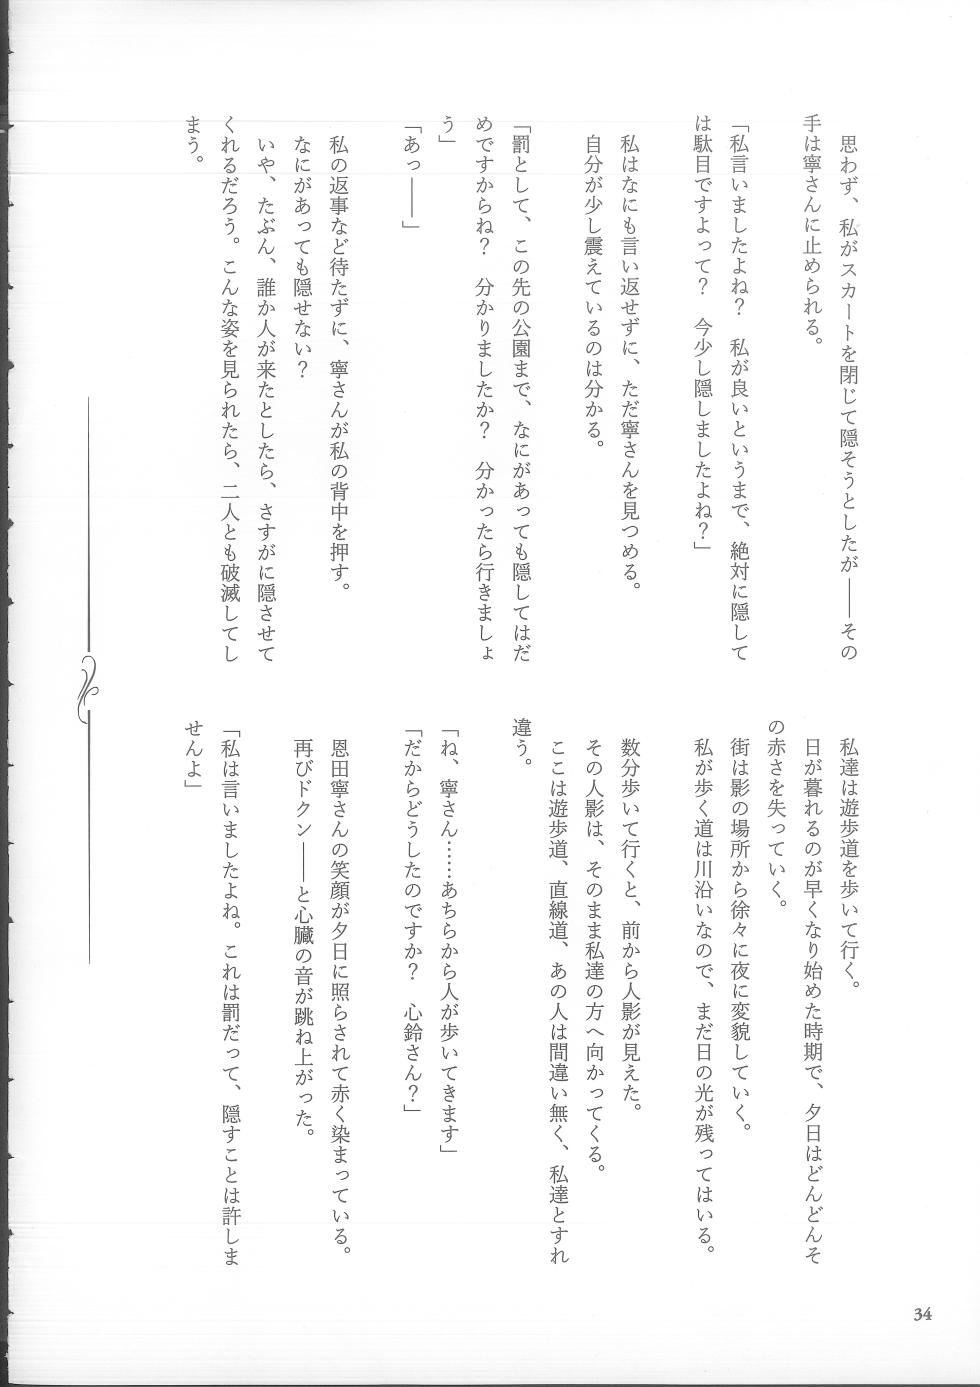 思わず、私がスカートを閉じて隠そうとしたが――その
手は寧さんに止められる。
「私言いましたよね？　私が良いというまで、絶対に隠して
は駄目ですよって？　今少し隠しましたよね？」
私はなにも言い返せずに、ただ寧さんを見つめる。
自分が少し震えているのは分かる。
「罰として、この先の公園まで、なにがあっても隠してはだ
めですからね？　分かりましたか？　分かったら行きましょ
う」
「あっ――」
私の返事など待たずに、寧さんが私の背中を押す。
なにがあっても隠せない？
いや、たぶん、誰か人が来たとしたら、さすがに隠させて
くれるだろう。こんな姿を見られたら、二人とも破滅してし
まう。
私達は遊歩道を歩いて行く。
日が暮れるのが早くなり始めた時期で、夕日はどんどんそ
の赤さを失っていく。
街は影の場所から徐々に夜に変貌していく。
私が歩く道は川沿いなので、まだ日の光が残ってはいる。
数分歩いて行くと、前から人影が見えた。
その人影は、そのまま私達の方へ向かってくる。
ここは遊歩道、直線道、あの人は間違い無く、私達とすれ
違う。
「ね、寧さん……あちらから人が歩いてきます」
「だからどうしたのですか？　心鈴さん？」
恩田寧さんの笑顔が夕日に照らされて赤く染まっている。
再びドクン――と心臓の音が跳ね上がった。
「私は言いましたよね。これは罰だって、隠すことは許しま
せんよ」
34